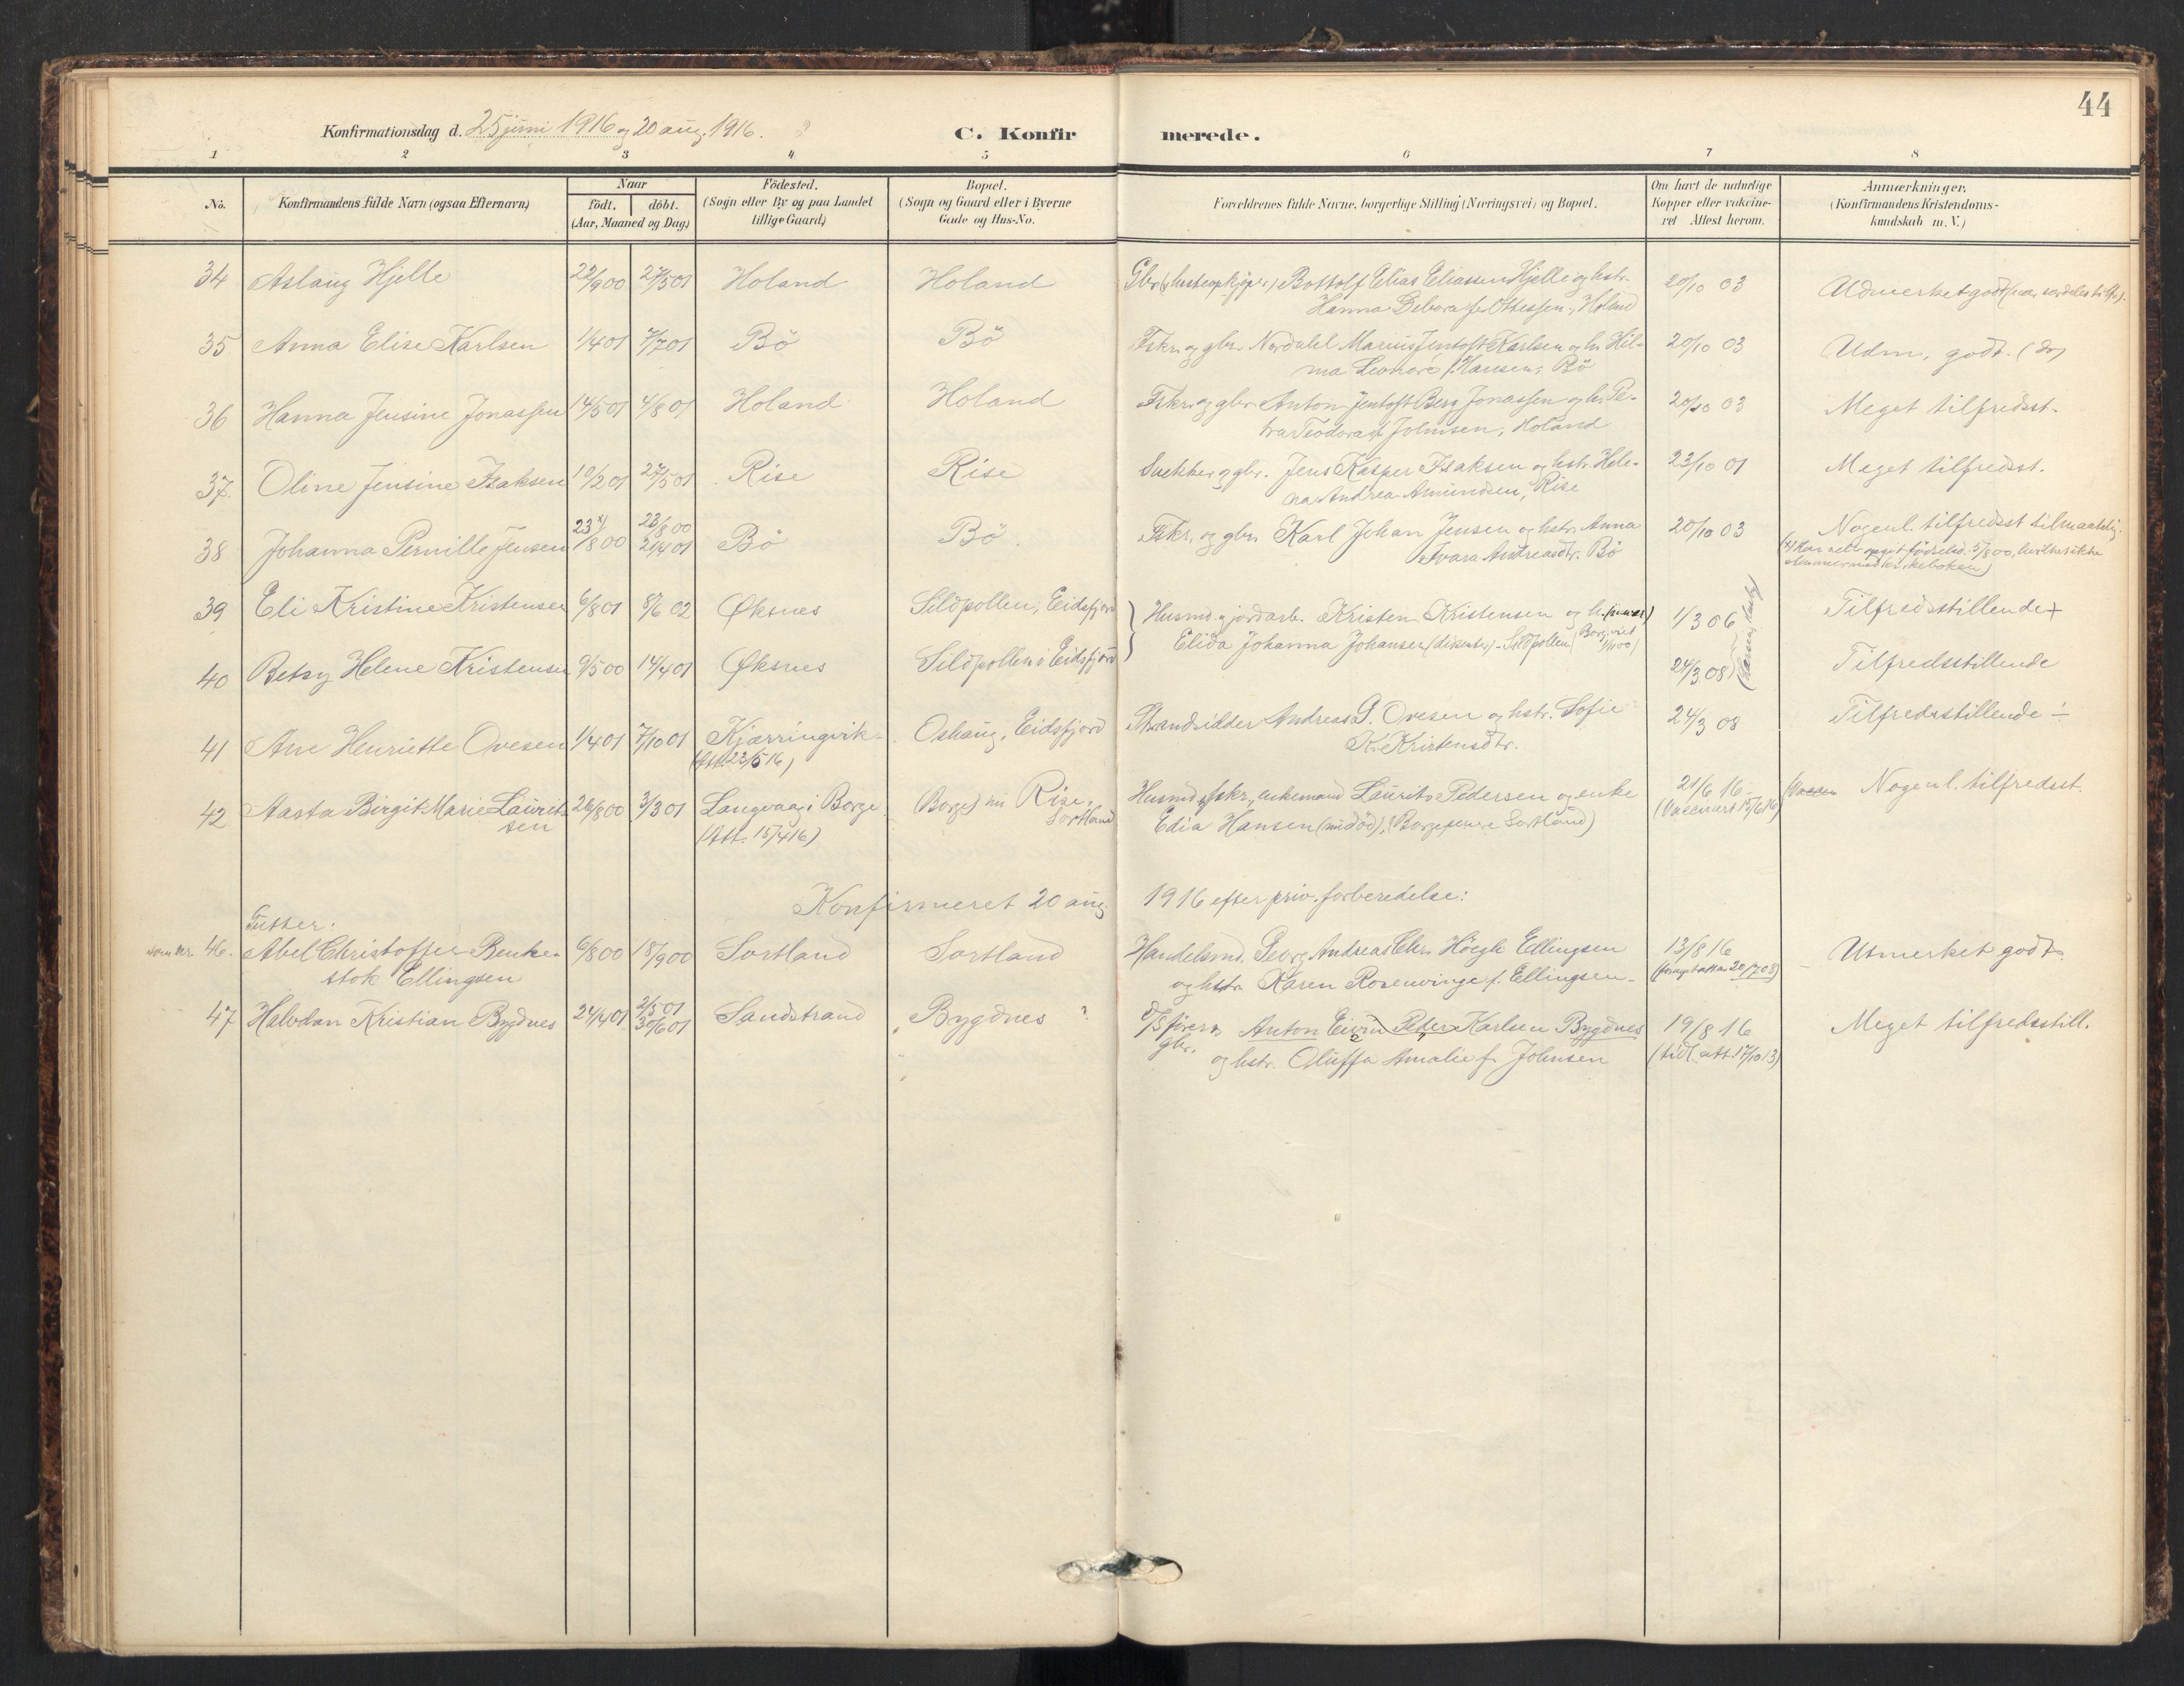 44
Konfirmationsdag d. 25 juni 1916 og 20 aug. 1916.
C. Konfirmerede.
1 2 3 4 5 6 7 8
No.
Konfirmandens fulde Navn (ogsaa Efternavn)
Naar
födt. döbt.
(Aar, Maaned og Dag)
Födested.
(Sogn eller By og paa Landet
tillige Gaard)
Bopæl.
(Sogn og Gaard eller i Byerne
Gade og Hus-No.
Forældrenes fulde Navne, borgerlige Stilling (Næringsvei) og Bopæl.
Om havt de naturlige
Kopper eller vakcine-
ret Attest herom.
Anmærkninger.
(Konfirmandens Kristendoms-
kundskab m. V.)
34 Aslaug Hjelle 22/9 00 27/5 01 Holand Holand Gbr. Bottolf Elias Eliassen Hjelle og hstr. 20/10 03 Udmerket godt
Hanna Debora f. Ottessen, Holand
35 Anna Elise Karlsen 1/4 01 7/7 01 Bö Bö Fskr. og gbr. Nordalil Marius Jentoft Karlsen og h. Hil- 20/10 03 Udm. godt. (do)
ma Leonore f. Hansen, Bö
36 Hanna Jensine Jonassen 14/5 01 4/8 01 Holand Holand Fskr. og gbr. Anton Jentoft Berg Jonassen og h. Pe- 20/10 03 Meget tilfredsst.
tra Teodora f. Johnsen, Holand
37. Oline Jensine Isaksen 10/2 01 27/5 01 Rise Rise Snekker og gbr. Jens Kasper Isaksen og hstr. Hele- 23/10 01 Meget tilfredsst.
na Andrea Amundsen, Rise
38 Johanna Pernille Jensen 23/8 00 x) 23/8 00 21/4 01 Bö Bö. Fskr. og gbr. Karl Johan Jensen og hstr. Anna 20/10 03 Nogenl. tilfredsst
Ivara Andreasdtr. Bö
39 Eli Kristine Kristensen 6/8 01 8/6 02 Øksnes Sildpollen, Eidsfjord Husmd. og jordarb. Kristen Kristensen og h. 1/3 06 Tilfredsstillende +
Elida Johanna Johansen (dissenter) - Sildpollen
40 Betsy Helene Kristensen 9/5 00 14/4 01 Øksnes Sildpollen i Eidsfjord 24/3 08 Tilfredsstillende
41 Ane Henriette Ovesen 1/4 01 7/10 01 Kjærringvik Oshaug, Eidsfjord Strandsidder Andreas G. Ovesen og hstr. Sofie 24/3 08 Tilfredsstillende ÷
(Att. 23/5 16) Kr. Kristensdtr.
42 Aasta Birgit Marie Laurit- 26/8 00 3/3 01 Langvaag i Borge Borge, nu Rise, Husmd. og fskr., enkemand Laurits Pedersen og enke 21/6 16 Nogenl. tilfredsst.
sen (Att. 15/4 16) Sortland Edia Hansen (nu död), (Vaccinert 15/6 16)
Konfirmeret 20 aug. 1916 efter priv. forberedelse:
Gutter:
som nr. 46. Abel Christoffer Benke- 6/8 00 18/9 00 Sortland Sortland Handelsmd. Georg Andreas Chr. Höegh Ellingsen 13/8 16 Utmerket godt.
stok Ellingsen og hstr. Karen Rosenvinge f. Ellingsen
47 Halvdan Kristian Bygdnes 24/4 01 2/5 01 30/6 01 Sandstrand Bygdnes ? D/S förer og Anton Eivin Peder Karlsen Bygdnes 19/8 16 Meget tilfredsstill.
gbr. og hstr. Oluffa Amalie f. Johnsen (tidl. att. 17/10 13)